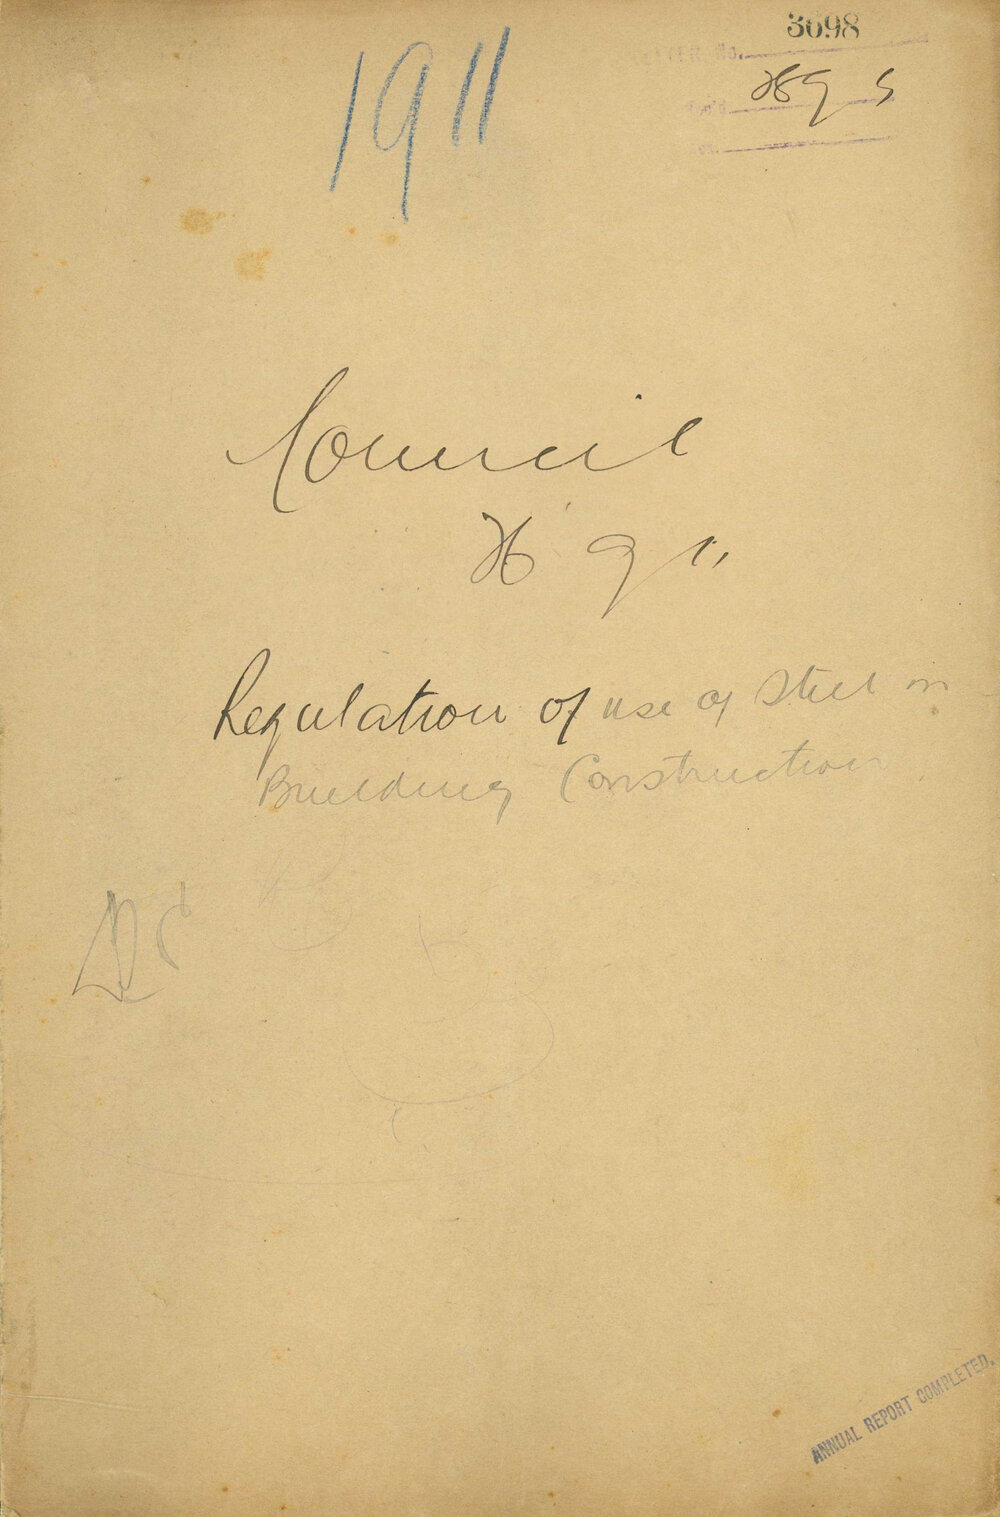 3698
1911
LETTER No.
Council
Regulation of use of Steel in
Building Construction
ANNUAL REPORT COMPLETED.